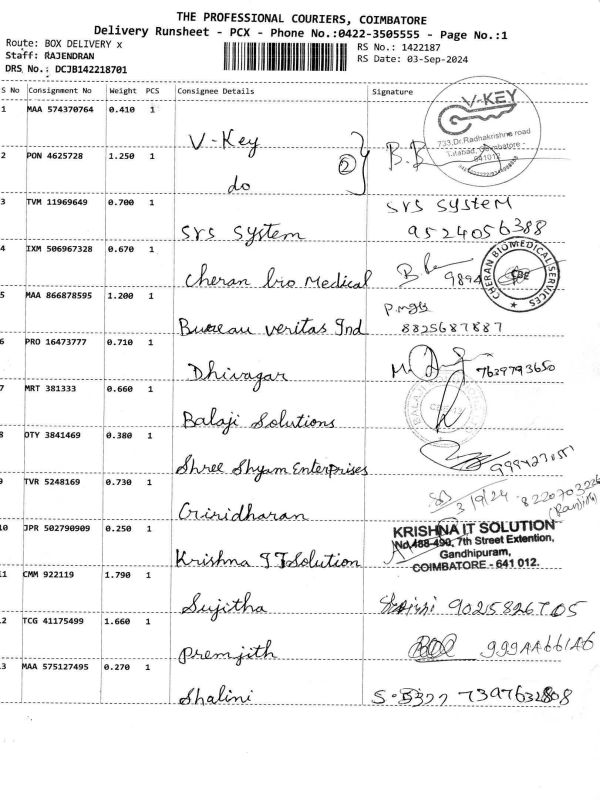 THE PROFESSIONAL COURIERS, COIMBATORE
Delivery Runsheet - PCX - Phone No.:0422-3505555 - Page No.:1
Route: BOX DELIVERY x
RS No.: 1422187
Staff: RAJENDRAN
RS Date: 03-Sep-2024
DRS No.: DCJB142218701
S No Consignment No Weight PCS Consignee Details Signature
1 MAA 574370764 0.410 1 V-Key
V-KEY
733, Dr. Radhakrishna road
Tatabad, Coimbatore -
641012
2 PON 4625728 1.250 1 do ② B.B
3 TVM 11969649 0.700 1 SVS System SVS SYSTEM
9524056388
4 IXM 506967328 0.670 1 Cheran bio Medical 9894
CHERAN BIOMEDICAL SERVICES
CBE
5 MAA 866878595 1.200 1 Bureau veritas Ind
8825687887
6 PRO 16473777 0.710 1 Dhivagar 7639793650
7 MRT 381333 0.660 1 Balaji Solutions
8 OTY 3841469 0.380 1 Shree Shyam Enterprises
9 TVR 5248169 0.730 1 Giridharan 3/9/24
(Ranjith)
10 JPR 502790909 0.250 1 Krishna IT Solution
KRISHNA IT SOLUTION
No,488-490, 7th Street Extention,
Gandhipuram,
COIMBATORE - 641 012.
11 CMM 922119 1.790 1 Sujitha 9025826705
12 TCG 41175499 1.660 1 Premjith
13 MAA 575127495 0.270 1 Shalini